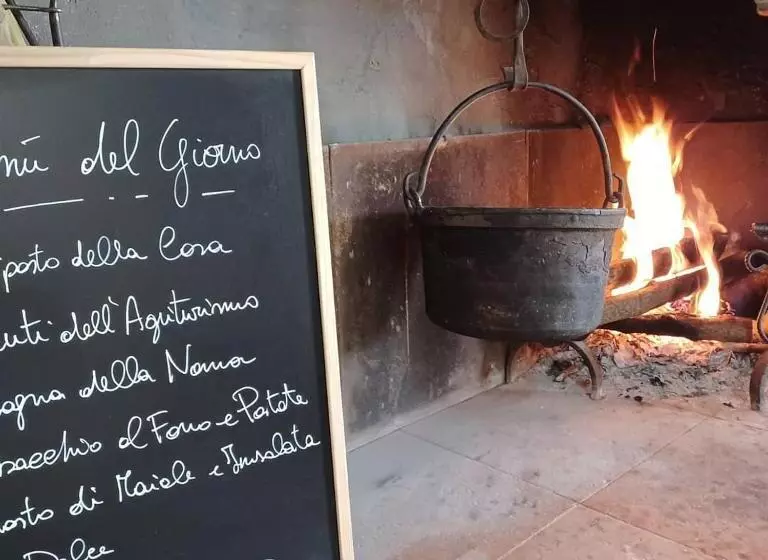 nù del Giorno
iposto della Casa
nti dell'Agriturismo
sagna della Nonna
bacchio al Forno e Patate
osto di Maiale e Insalata
Dolce